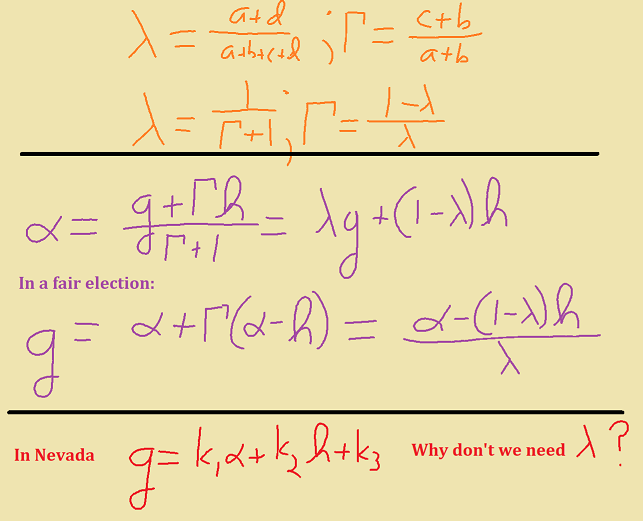 λ = (a+d)/(a+b+c+d) ; Γ = (c+b)/(a+b)
λ = 1/(Γ+1) ; Γ = (1-λ)/λ
α = (g+Γh)/(Γ+1) = λg+(1-λ)h
In a fair election:
g = α+Γ(α-h) = (α-(1-λ)h)/λ
In Nevada g = k₁α+k₂h+k₃ Why don't we need λ?